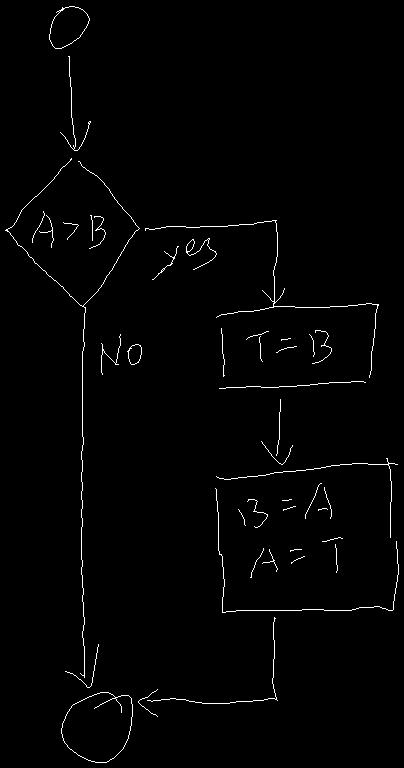 A > B
yes
NO
T = B
B = A
A = T